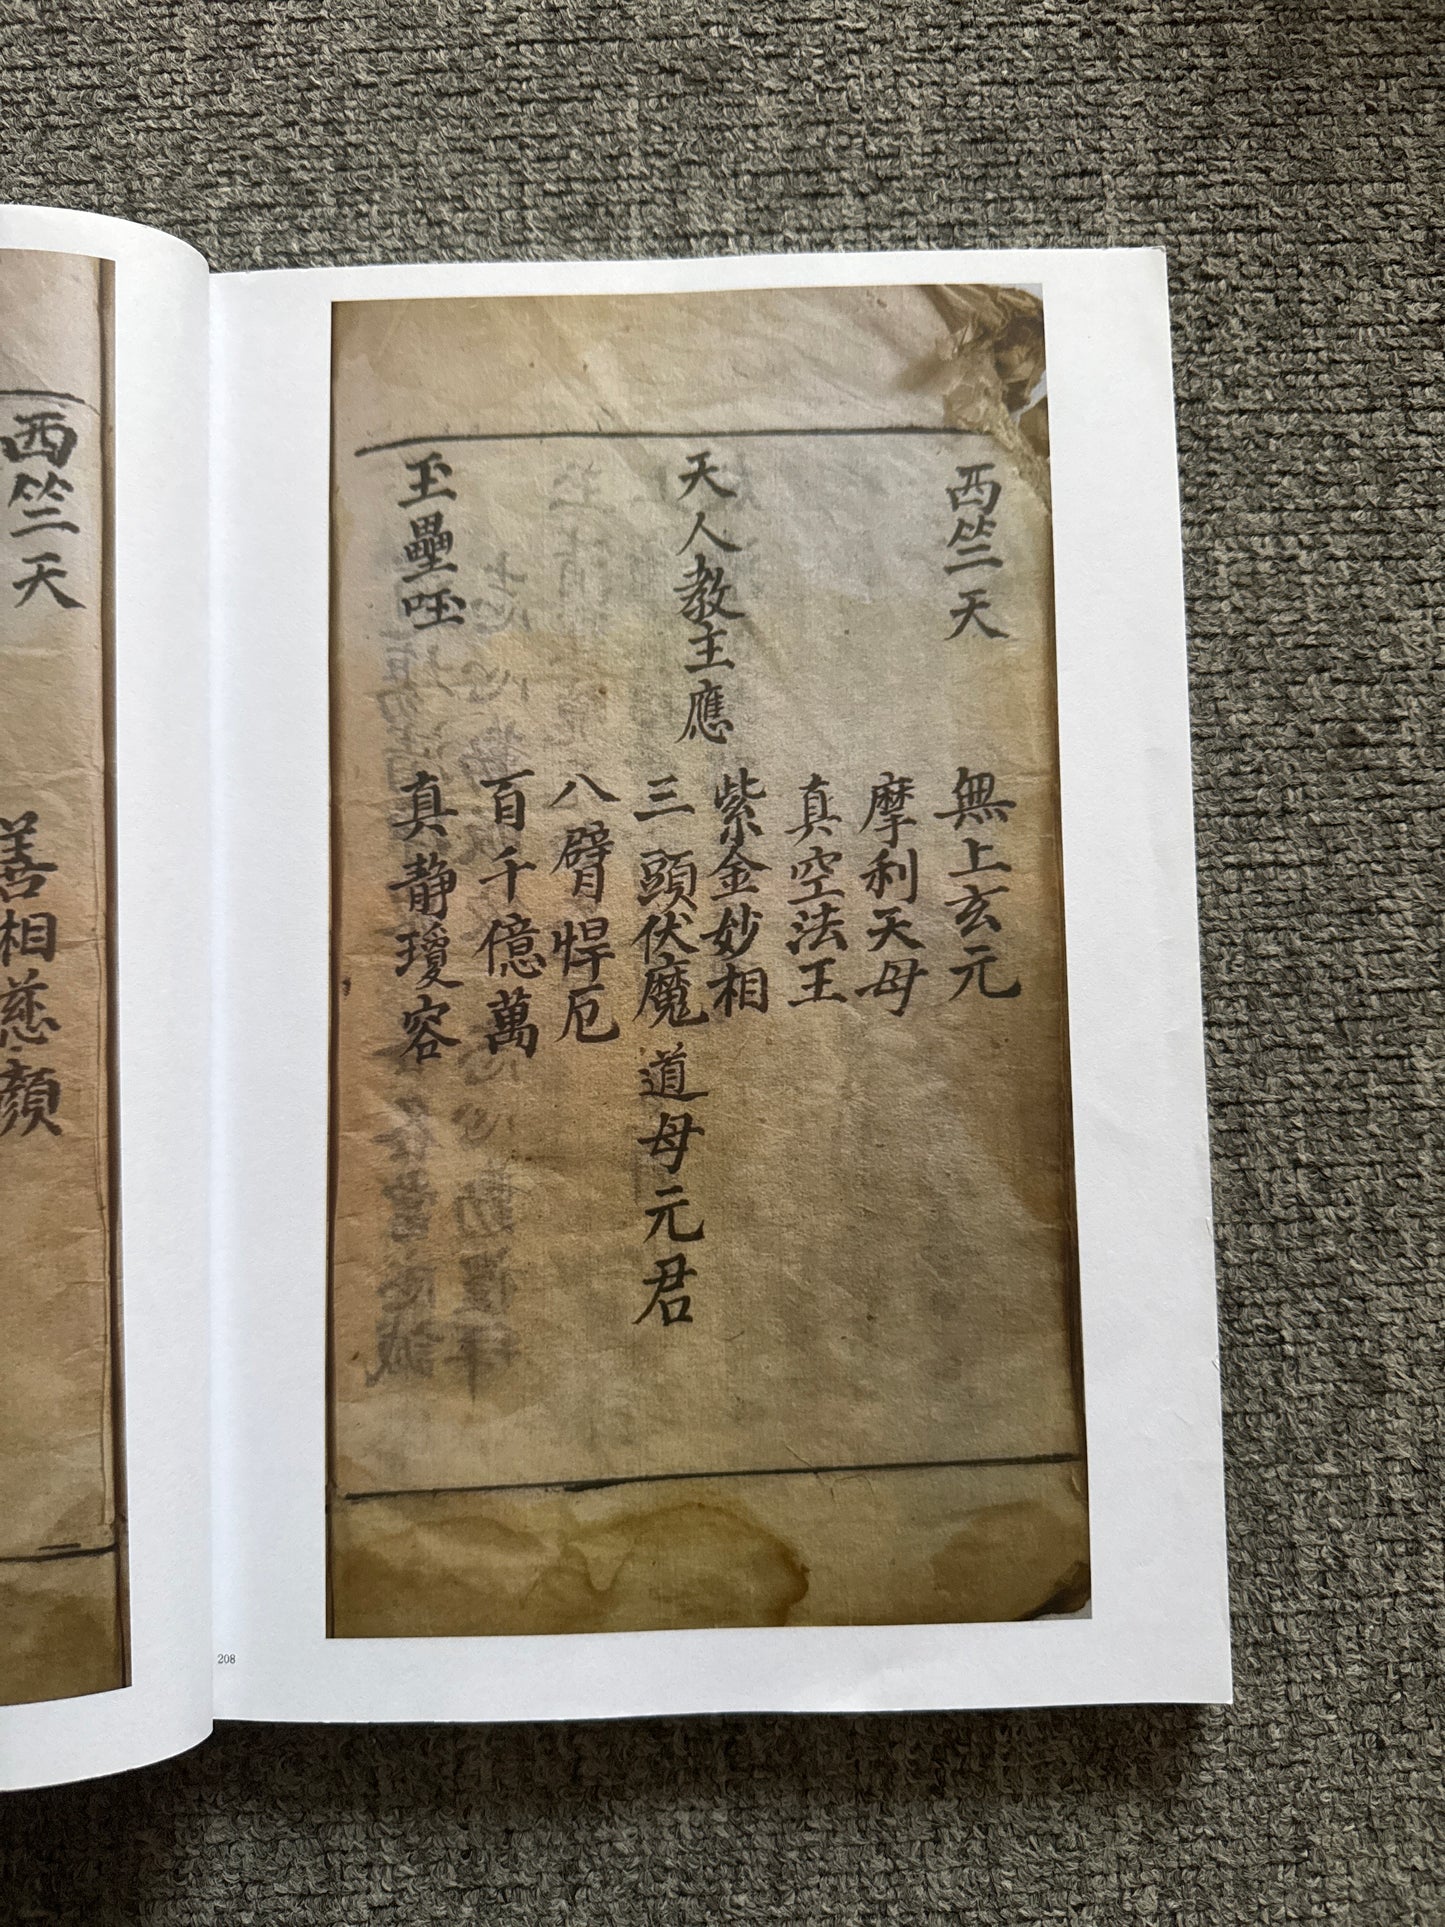 西竺天
無上玄元
摩利天母
真空法王
紫金妙相
天人教主應
三頭伏魔
道母元君
八臂悍厄
百千億萬
玉壘
真靜瓊容
西竺天
善相慈顏
208